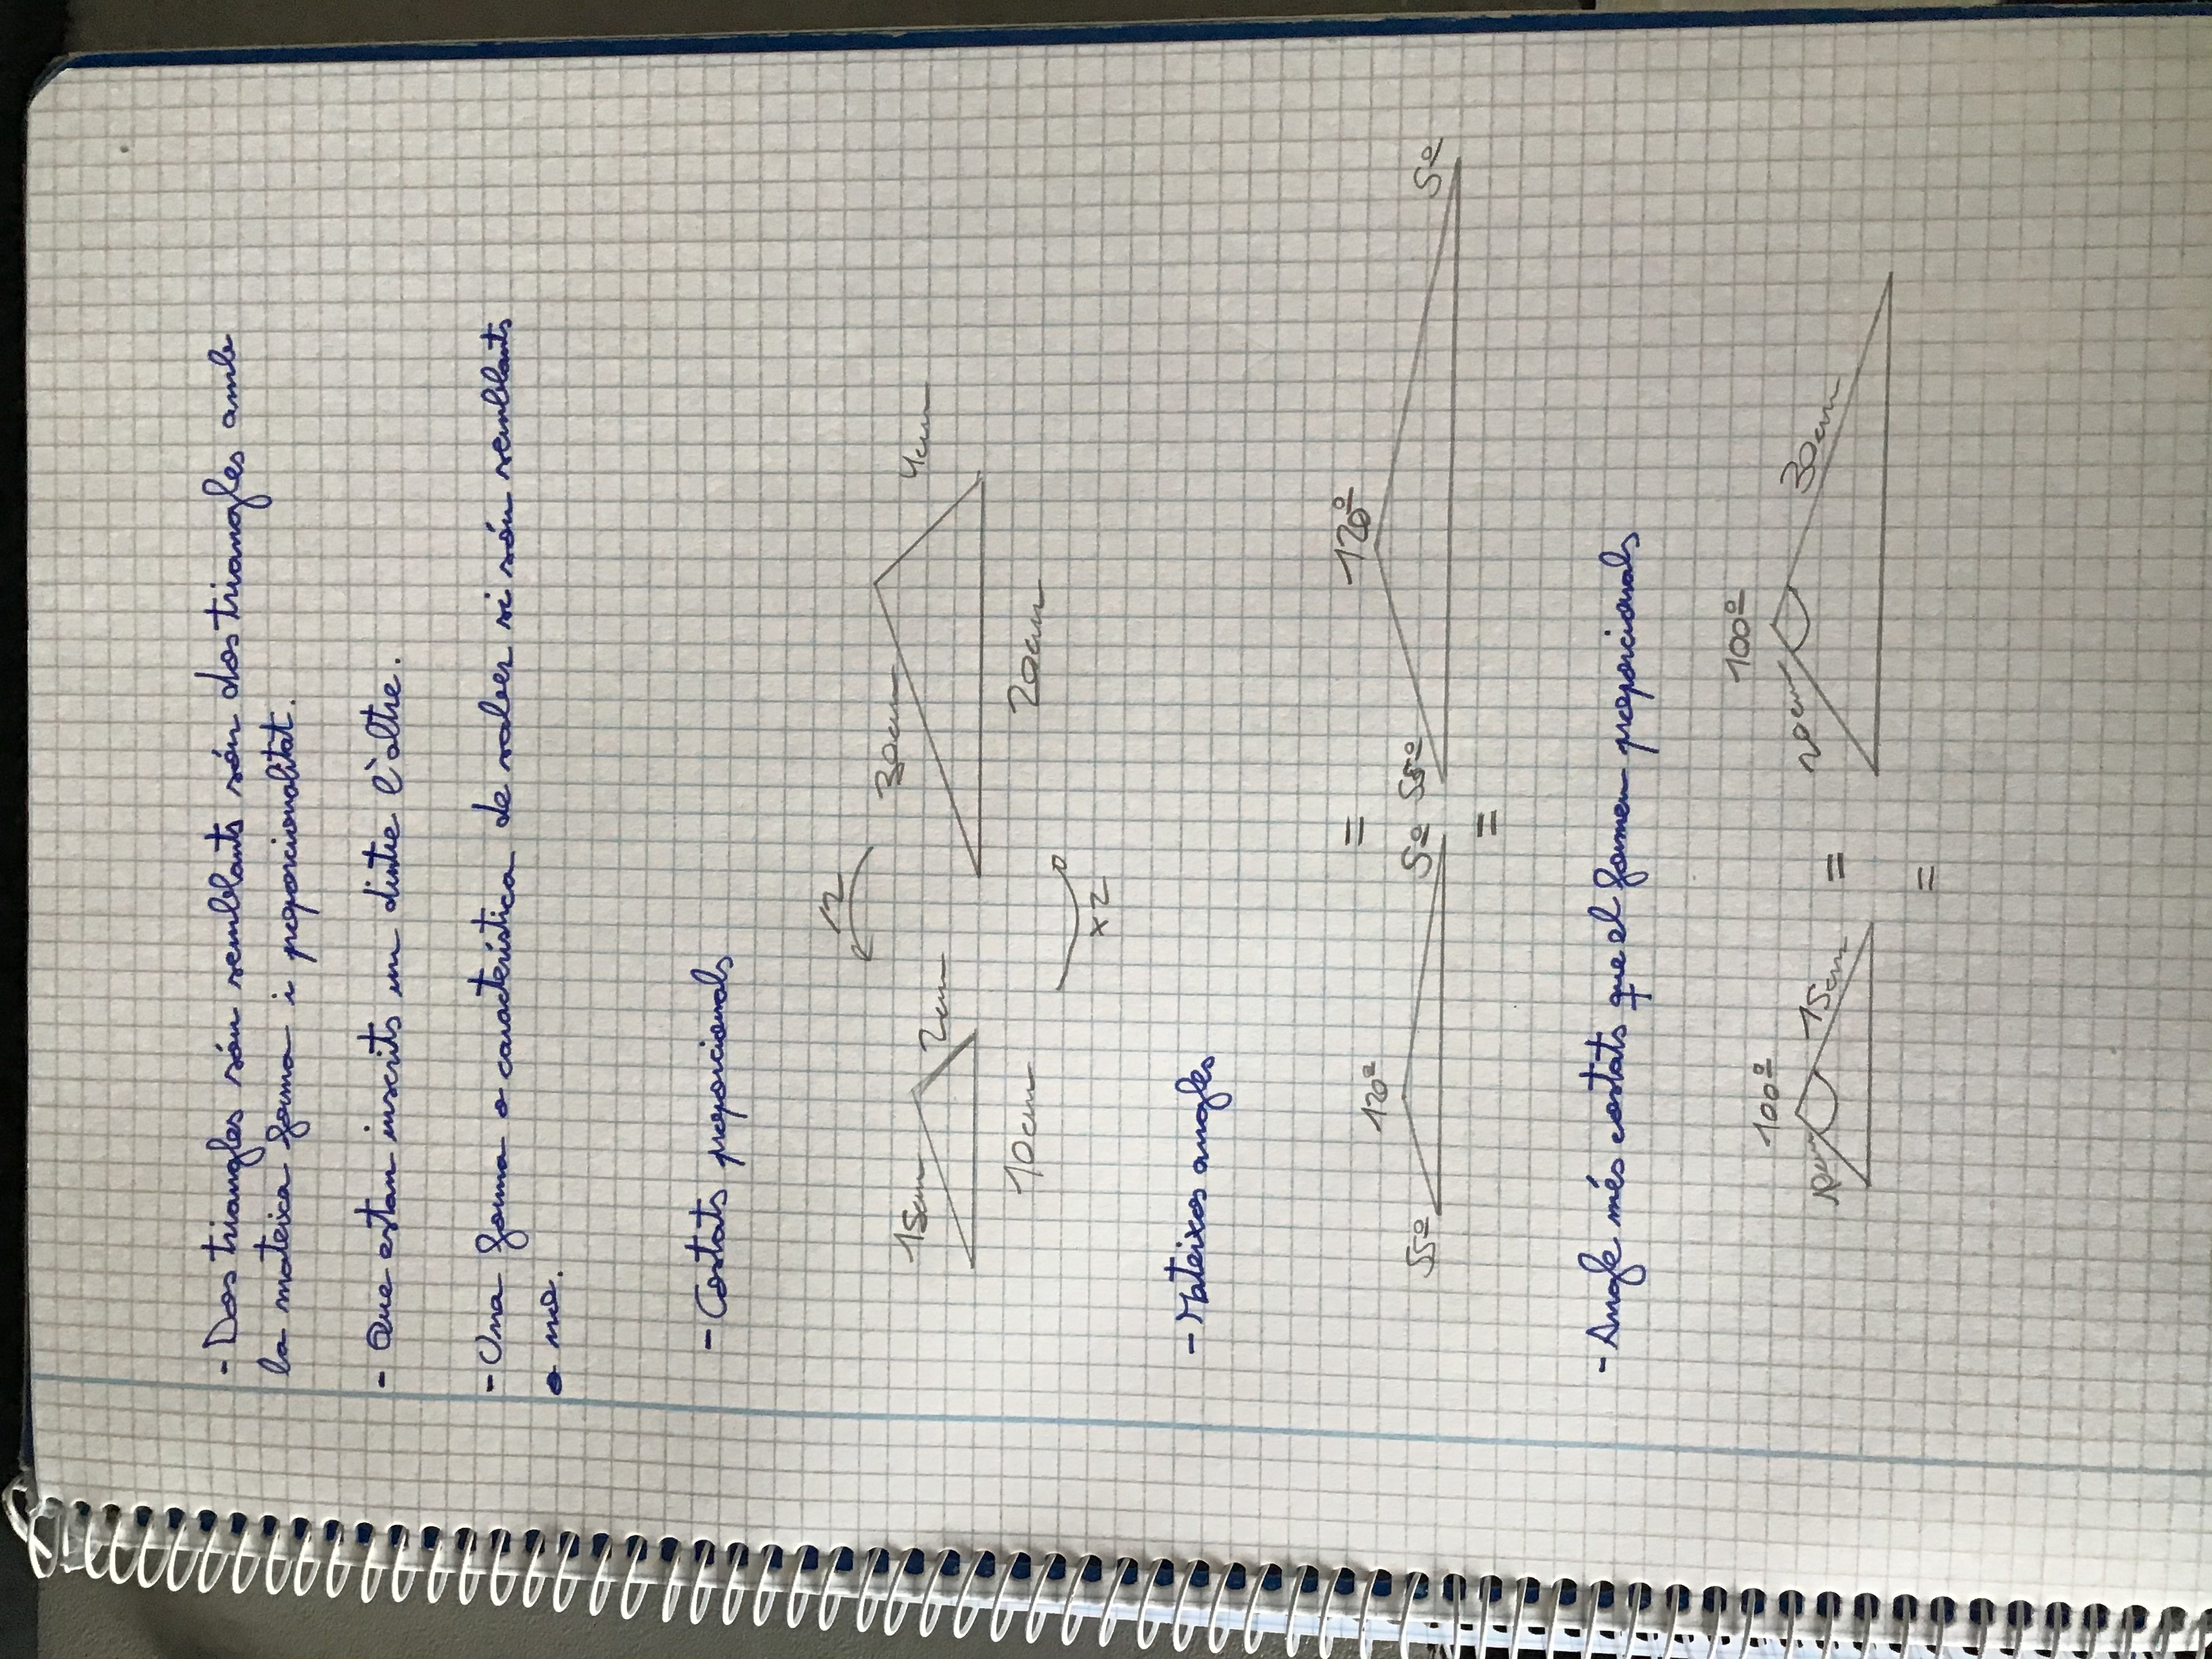 - Dos triangles són semblants són dos triangles amb
la mateixa forma i proporcionalitat.
- Que estan inscrits un dintre l'àltre.
- Una forma o característica de saber si són semblants
o no.
- Costats proporcionals
12
15cm 2cm 30cm 4cm
10cm 20cm
x2
- Mateixos angles
120º = 120º
55º 5º 55º 5º
=
- Angle més costats que el formen proporcionals
100º 100º
10cm 15cm = 20cm 30cm
=